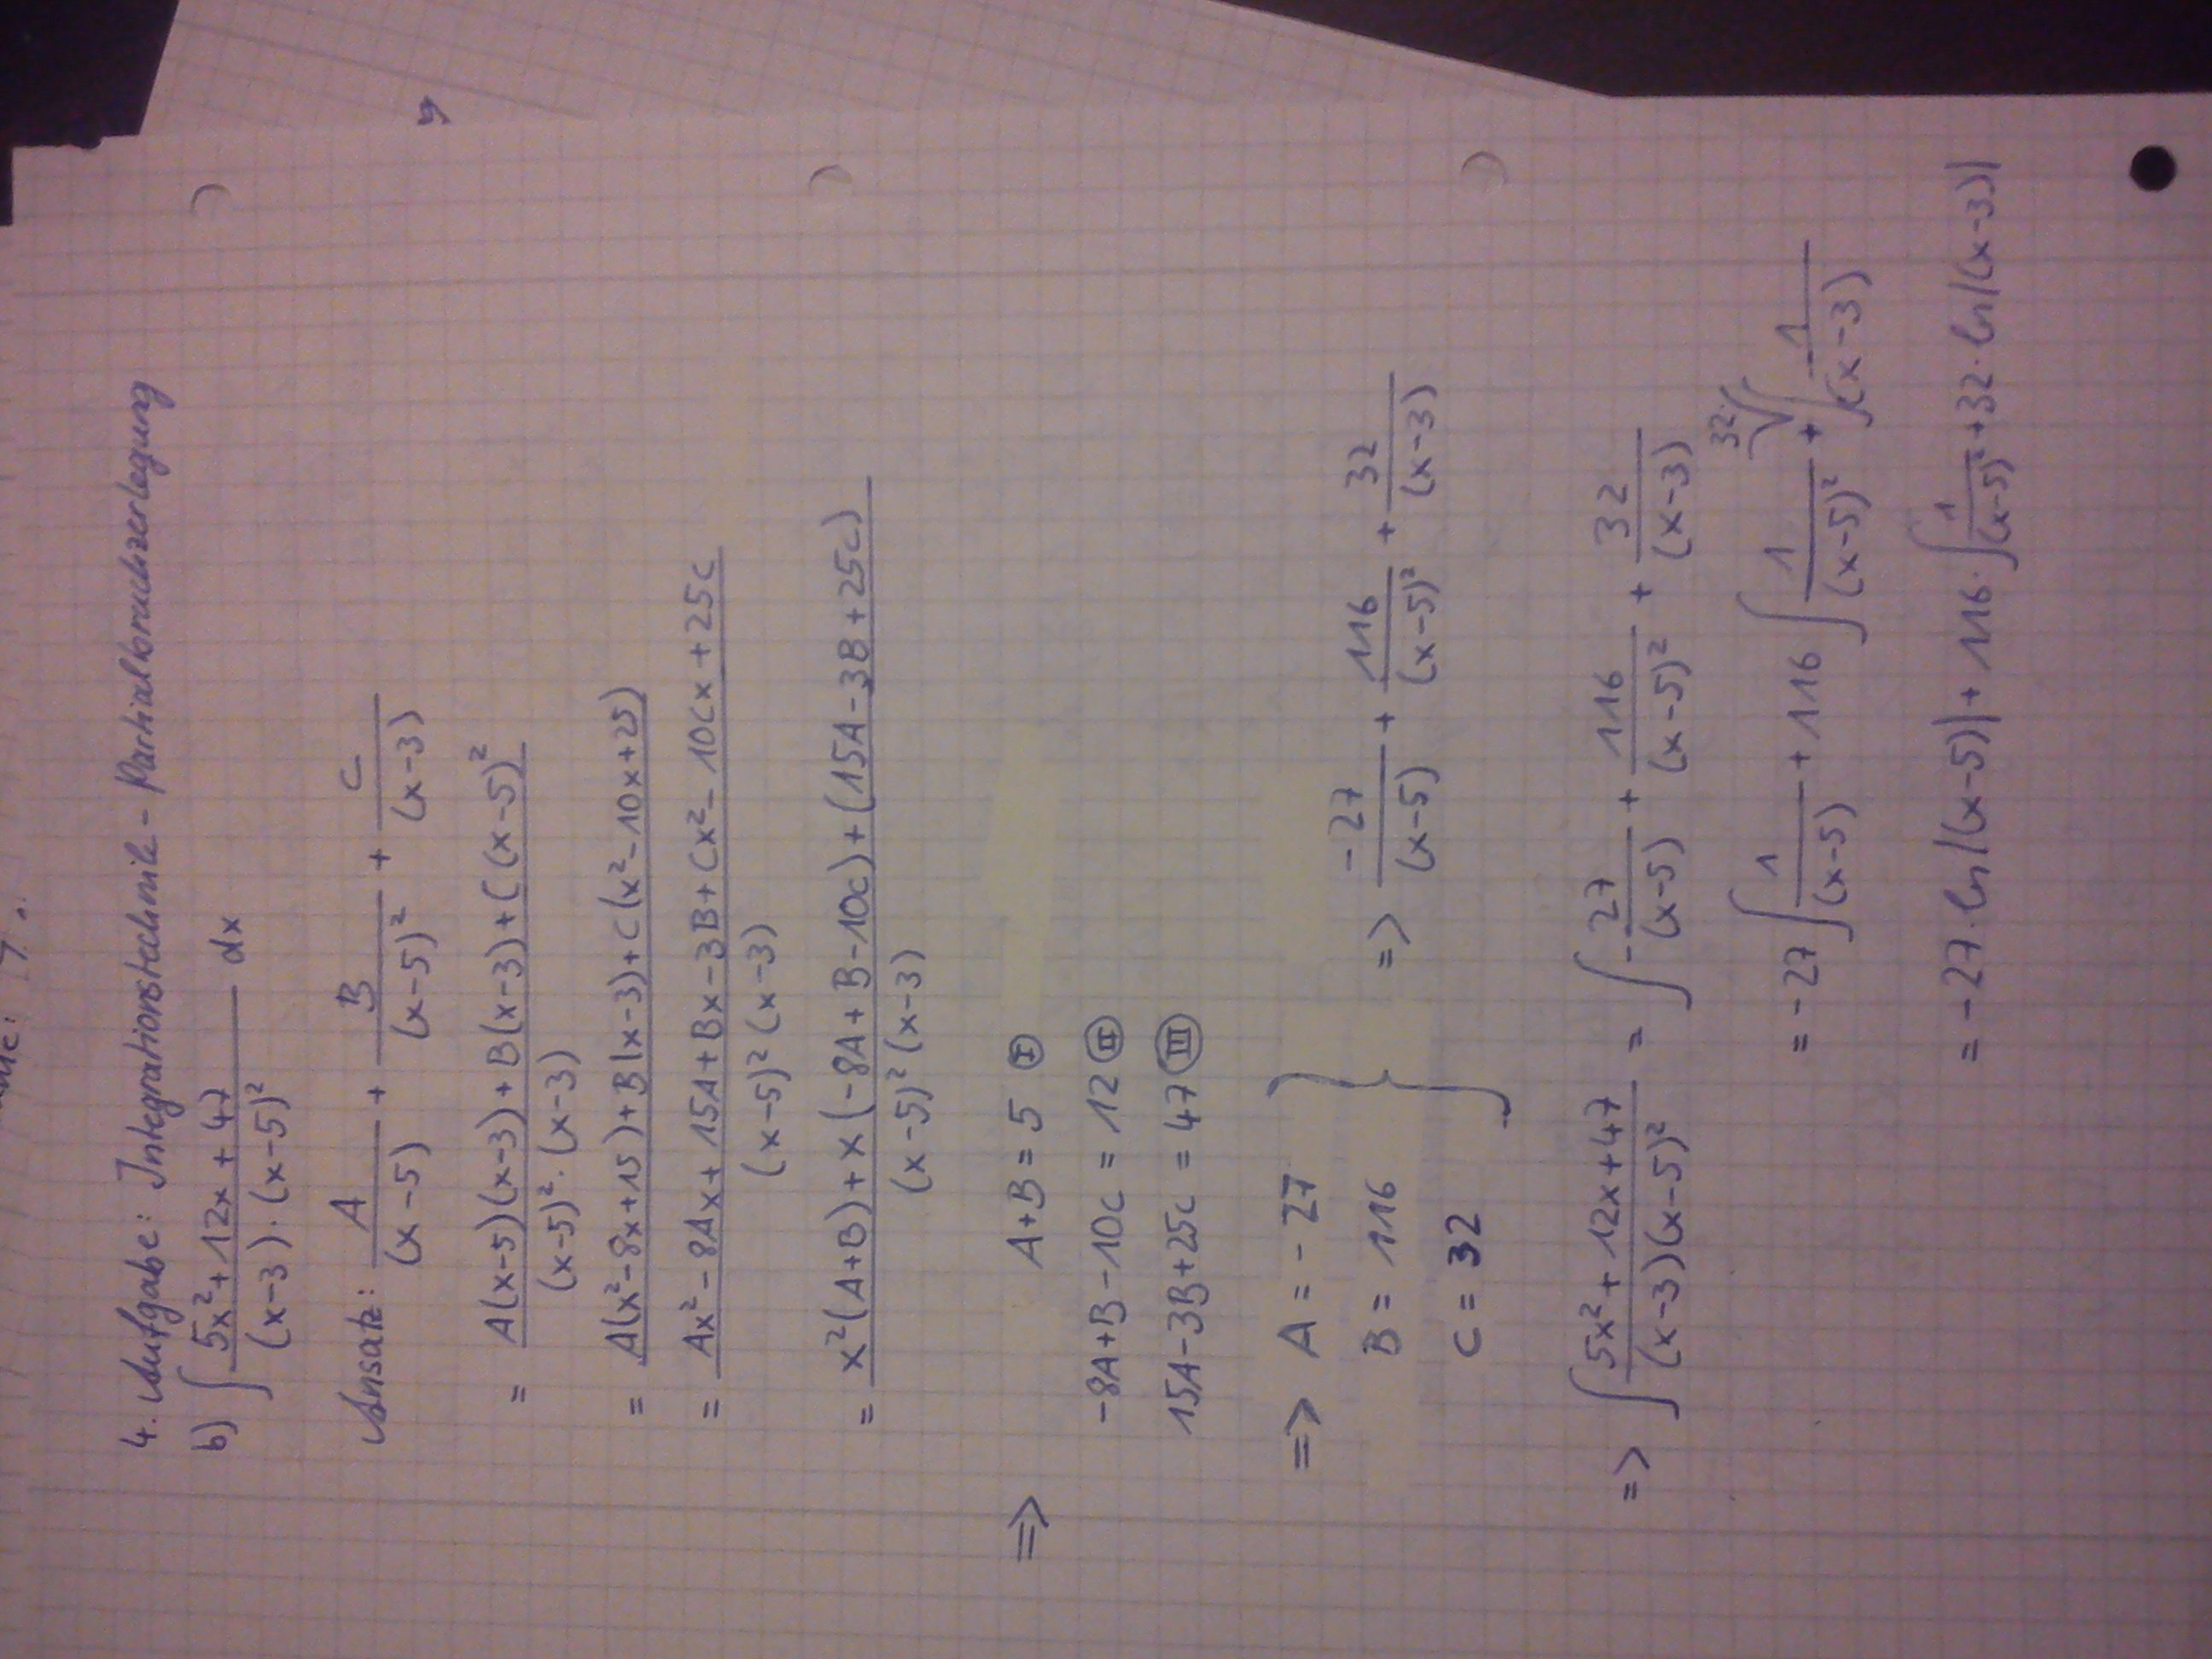 4. Aufgabe: Integrationstechnik - Partialbruchzerlegung
b) ∫ (5x² + 12x + 47) / ((x-3)·(x-5)²) dx
Ansatz: A/(x-5) + B/(x-5)² + C/(x-3)
= (A(x-5)(x-3) + B(x-3) + C(x-5)²) / ((x-5)²·(x-3))
= A(x²-8x+15) + B(x-3) + C(x²-10x+25)
= (Ax² - 8Ax + 15A + Bx - 3B + Cx² - 10Cx + 25C) / ((x-5)²(x-3))
= (x²(A+B) + x(-8A+B-10C) + (15A-3B+25C)) / ((x-5)²(x-3))
=> A+B = 5 Ⓘ
-8A+B-10C = 12 Ⅱ
15A-3B+25C = 47 Ⅲ
=> A = -27
B = 116
C = 32
=> -27/(x-5) + 116/(x-5)² + 32/(x-3)
=> ∫ (5x² + 12x + 47) / ((x-3)(x-5)²) = ∫ -27/(x-5) + 116/(x-5)² + 32/(x-3)
= -27 ∫ 1/(x-5) + 116 ∫ 1/(x-5)² + 32· ∫ 1/(x-3)
= -27·ln|(x-5)| + 116·∫ 1/(x-5)² + 32·ln|(x-3)|